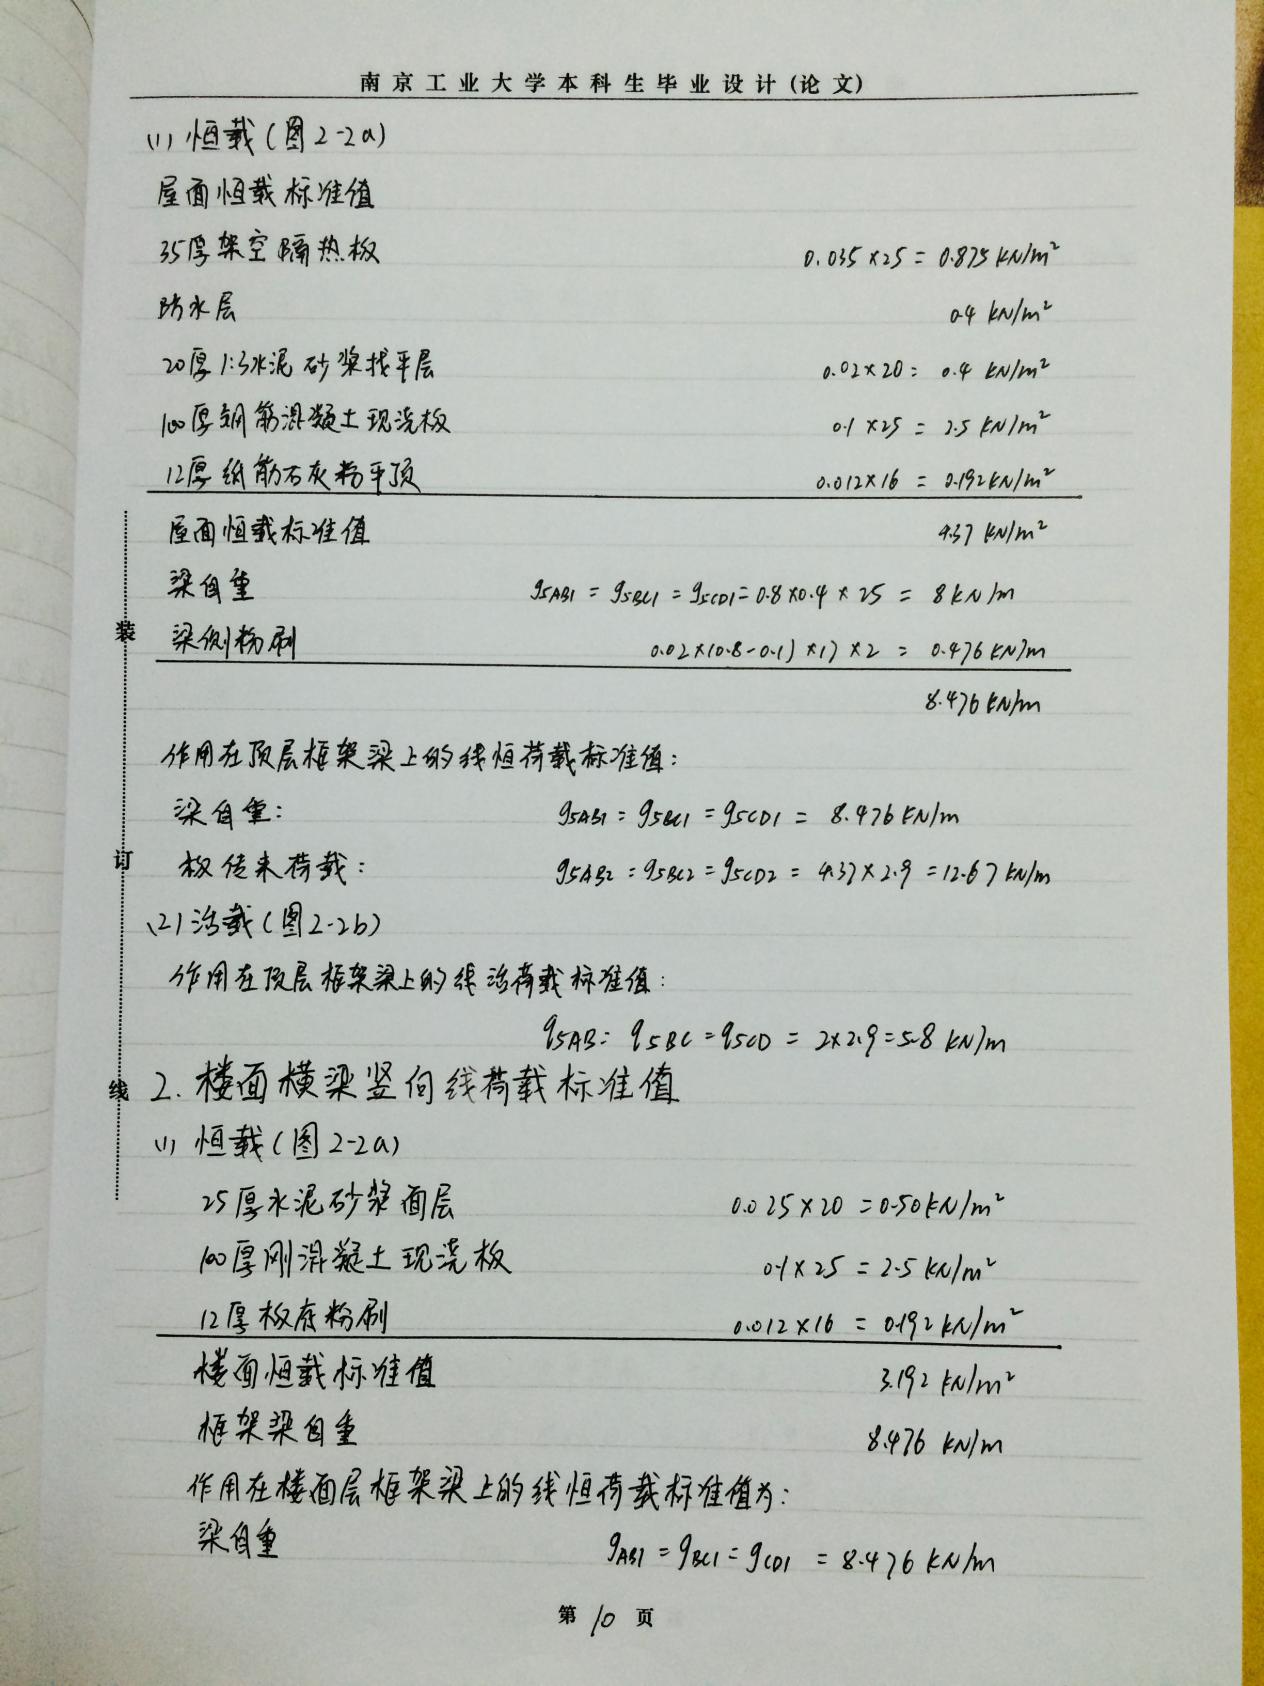 南京工业大学本科生毕业设计(论文)
(1) 恒载(图2-2a)
屋面恒载标准值
35厚架空隔热板 0.035×25=0.875 KN/m²
防水层 0.4 KN/m²
20厚1:3水泥砂浆找平层 0.02×20= 0.4 KN/m²
100厚钢筋混凝土现浇板 0.1×25 = 2.5 KN/m²
12厚纸筋石灰粉平顶 0.012×16 = 0.192KN/m²
屋面恒载标准值 4.37 KN/m²
梁自重 g5AB1 = g5BC1 = g5CD1=0.8×0.4×25 = 8KN/m
梁侧粉刷 0.02×(0.8-0.1)×17×2 = 0.476KN/m
8.476KN/m
作用在顶层框架梁上的线恒荷载标准值:
梁自重: g5AB1= g5BC1 = g5CD1 = 8.476KN/m
板传来荷载: g5AB2=g5BC2=g5CD2 = 4.37×2.9=12.67 KN/m
(2)活载(图2-2b)
作用在顶层框架梁上的线活荷载标准值:
q5AB= q5BC=q5CD = 2×2.9=5.8 KN/m
2. 楼面横梁竖向线荷载标准值
(1) 恒载(图2-2a)
25厚水泥砂浆面层 0.025×20 =0.50KN/m²
100厚刚混凝土现浇板 0.1×25 = 2.5 KN/m²
12厚板底粉刷 0.012×16 = 0.192KN/m²
楼面恒载标准值 3.192 KN/m²
框架梁自重 8.476 KN/m
作用在楼面层框架梁上的线恒荷载标准值为:
梁自重 gAB1=gBC1=gCD1 =8.476 KN/m
第 10 页
装
订
线